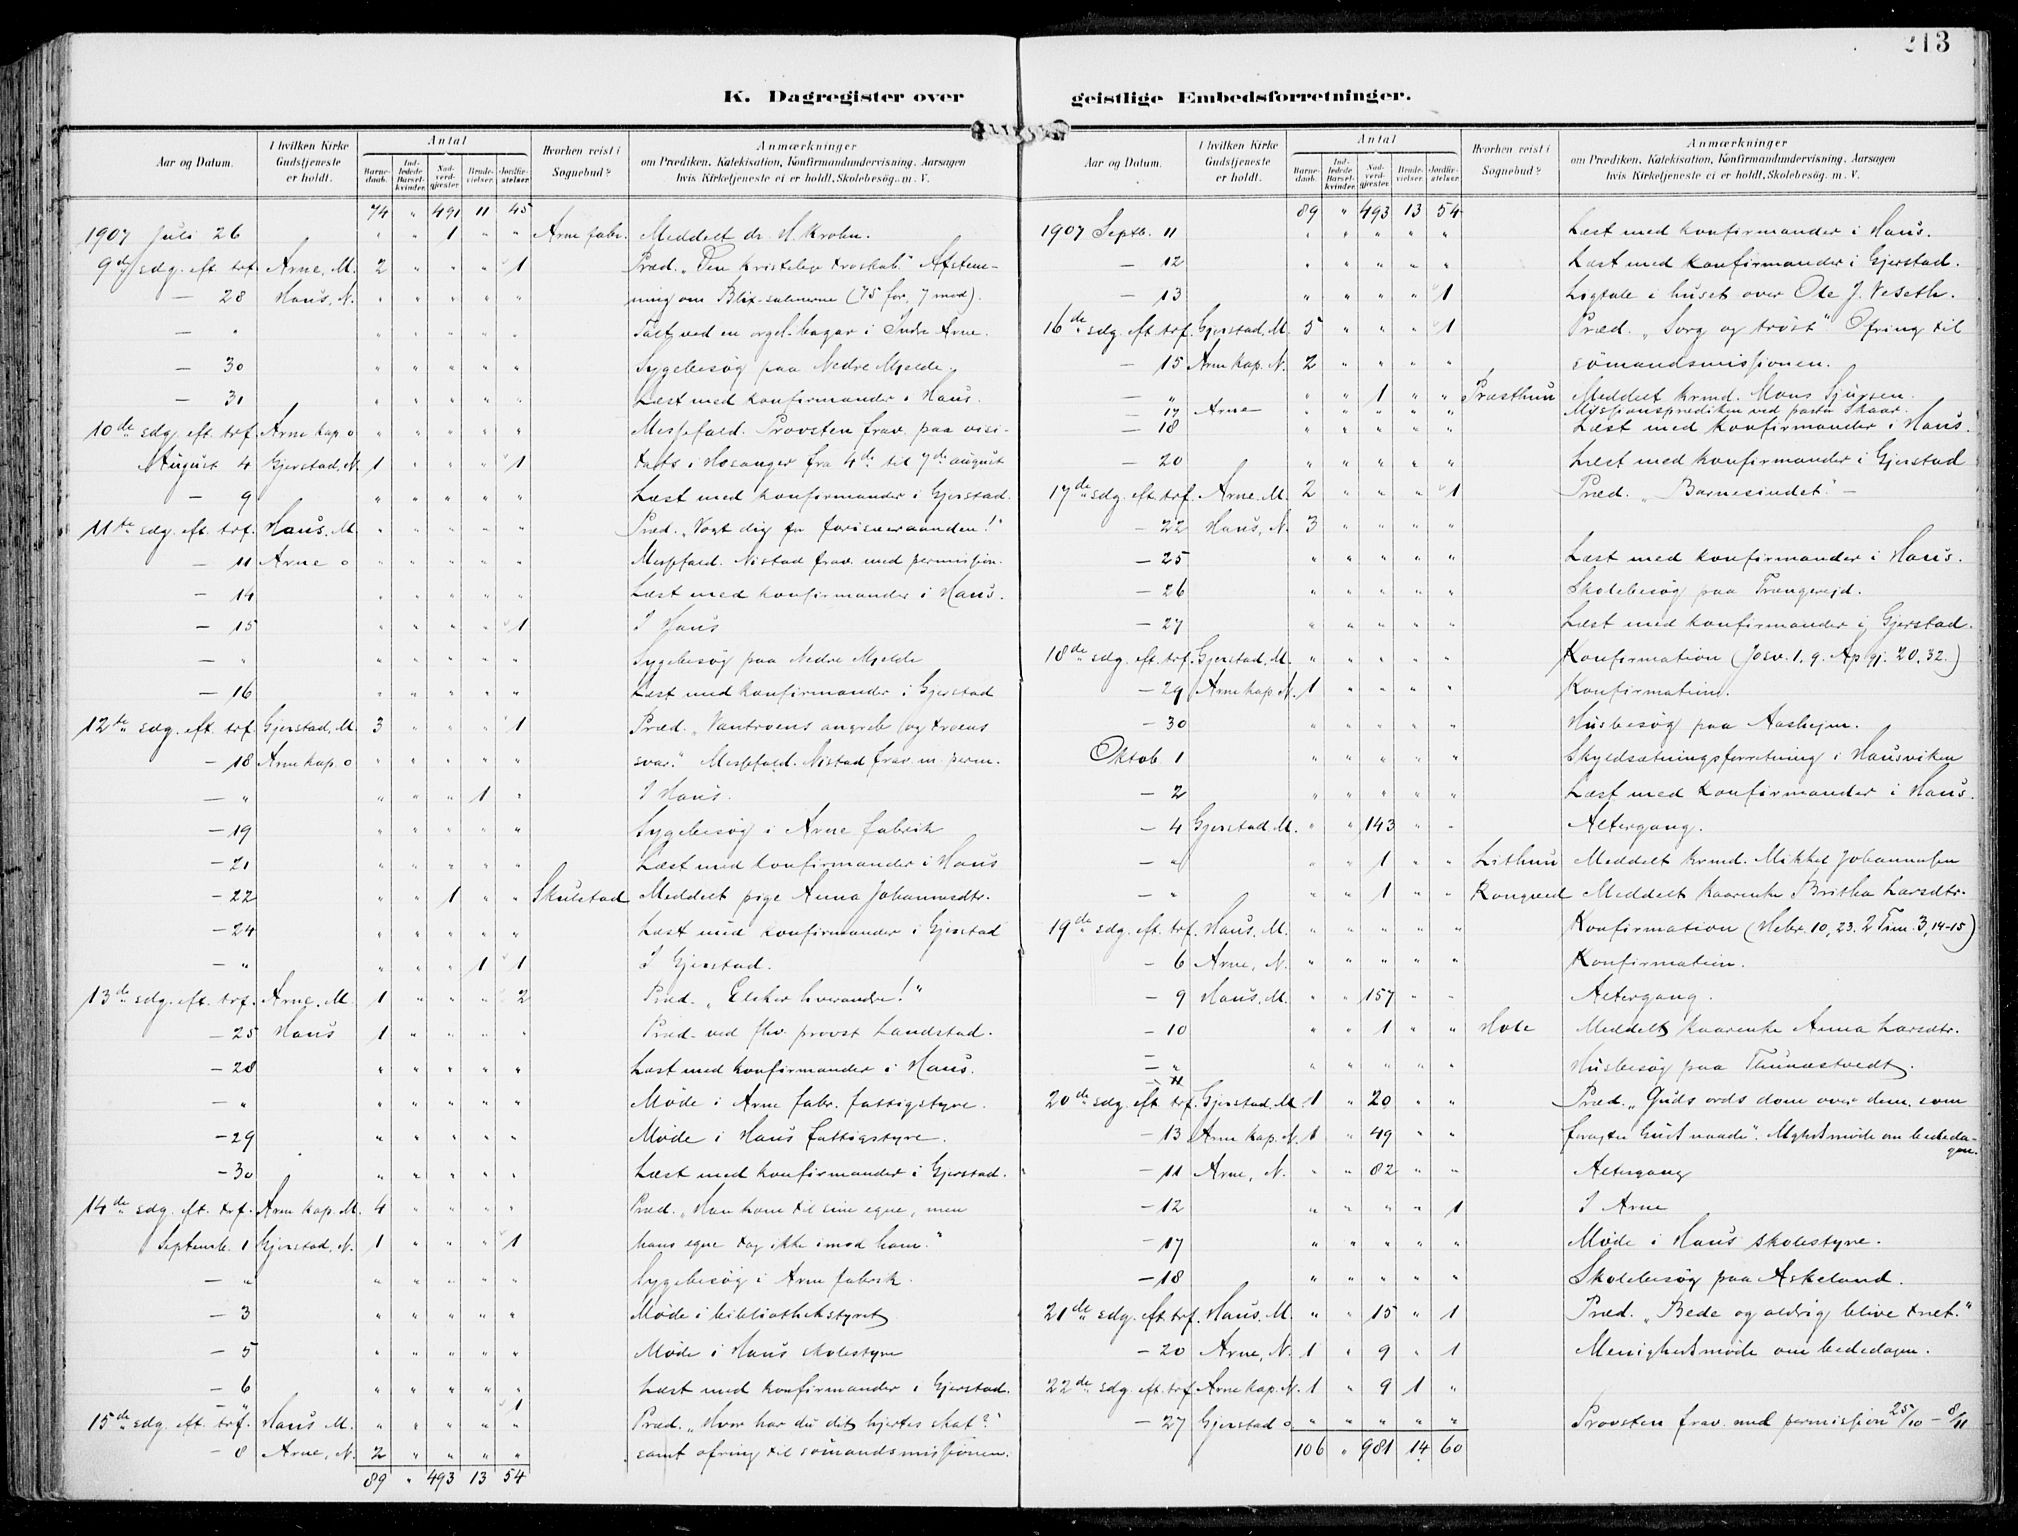 213
K. Dagregister over geistlige Embedsforretninger.
Aar og Datum. | I hvilken Kirke Gudstjeneste er holdt. | Antal: Barnedaab. | Indledede Barselkvinder. | Nadverdgjester | Brudevielser. | Jordfæstelser. | Hvorhen reist i Sognebud? | Anmærkninger om Prædiken, Katekisation, Konfirmandundervisning, Aarsagen hvis Kirketjeneste ei er holdt, Skolebesøg. m. V.
74 " 491 11 45
1907 Juli 26 " " 1 " " Arne fabr. Meddelt dr. H. Krohn.
9de sdg. eft. trf. Arne, M. 2 " " " 1 Præd. „Den kristelige troskab." Afstem-
— 28 Haus, N. " " " " " ning om Blix-salmerne (75 for, 7 mod).
— " " " " " " Talt ved en orgel-bazar i Indre Arne.
— 30 " " " " " Sygebesøg paa Nedre Mjelde.
— 31 " " " " " Læst med konfirmander i Haus.
10de sdg. eft. trf. Arne kap o " " " " " Messefald. Provsten frav. paa visi-
August 4 Gjerstad, N. 1 " " " 1 tats i Hosanger fra 4de til 7de august
— 9 " " " " " Læst med konfirmander i Gjerstad.
11te sdg. eft. trf. Haus, M. " " " " " Præd. „Vogt dig for fariseeraanden!"
— 11 Arne o " " " " " Messefald. Nistad frav. med permission.
— 14 " " " " " Læst med konfirmander i Haus.
— 15 " " " " 1 I Haus
— " " " " " " Sygebesøg paa Nedre Mjelde
— 16 " " " " " Læst med konfirmander i Gjerstad
12te sdg. eft. trf. Gjerstad, M. 3 " " " 1 Præd. „Vantroens angreb og troens
— 18 Arne kap. o " " " " " svar." Messefald. Nistad frav. m. perm.
— " " " " 1 " I Haus.
— 19 " " " " " Sygebesøg i Arne fabrik
— 21 " " " " " Læst med konfirmander i Haus
— 22 " " 1 " " Skulstad Meddelt pige Anna Johannesdtr.
— 24 " " " " " Læst med konfirmander i Gjerstad
— " " " " 1 1 I Gjerstad.
13de sdg. eft. trf. Arne, M. 1 " " " 2 Præd. „Elsker hverandre!"
— 25 Haus 1 " " " " Præd. ved fhv. provst Landstad.
— 28 " " " " " Læst med konfirmander i Haus.
— " " " " " " Møde i Arne fabr. fattigstyre.
— 29 " " " " " Møde i Haus fattigstyre.
— 30 " " " " " Læst med konfirmander i Gjerstad.
14de sdg. eft. trf. Arne kap. M. 4 " " " " Præd. „Han kom til sine egne, men
Septemb. 1 Gjerstad, N. 1 " " " 1 hans egne tog ikke imod ham."
— " " " " " " Sygebesøg i Arne fabrik.
— 3 " " " " " Møde i bibliothekstyret
— 5 " " " " " Møde i Haus skolestyre
— 6 " " " " " Læst med konfirmander i Gjerstad.
— " 1
15de sdg. eft. trf. Haus M. " " " " " Præd. „Hvor har du dit hjertes skat?"
— 8 Arne, N. 2 " " " " samt ofring til sømandsmissionen.
89 " 493 13 54
Aar og Datum. | I hvilken Kirke Gudstjeneste er holdt. | Antal: Barnedaab. | Indledede Barselkvinder. | Nadverdgjester | Brudevielser. | Jordfæstelser. | Hvorhen reist i Sognebud? | Anmærkninger om Prædiken, Katekisation, Konfirmandundervisning, Aarsagen hvis Kirketjeneste ei er holdt, Skolebesøg. m. V.
89 " 493 13 54
1907 Septb. 11 " " " " " Læst med konfirmander i Haus.
— 12 " " " " " Læst med konfirmander i Gjerstad.
— 13 " " " " 1 Ligtale i huset over Ole J. Veseth.
16de sdg. eft. trf. Gjerstad, M. 5 " " " 1 Præd. „Sorg og trøst" Ofring til
— 15 Arne kap. N. 2 " " " " sømandsmissionen.
— " " " 1 " " Præsthun Meddelt krmd. Mons Sjursen.
— 17 Arne " " " " " Missionsprædiken ved pastor Skaar.
— 18 " " " " " Læst med konfirmander i Haus.
— 20 " " " " " Læst med konfirmander i Gjerstad
17de sdg. eft. trf. Arne, M. 2 " " " 1 Præd. „Barnesindet." —
— 22 Haus, N. 3 " " " "
— 25 " " " " " Læst med konfirmander i Haus.
— 26 " " " " " Skolebesøg paa Trængereid.
— 27 " " " " " Læst med konfirmander i Gjerstad.
18de sdg. eft. trf. Gjerstad, M. " " " " " Konfirmation (Josv. 1, 9. Ap. gj. 20, 32.)
— 29 Arne kap. N. 1 " " " " Konfirmation.
— 30 " " " " " Husbesøg paa Aasheim.
Oktob. 1 " " " " " Skyldsætningsforretning i Hausviken
— 2 " " " " " Læst med konfirmander i Haus.
— 4 Gjerstad, M. " " 143 " " Altergang.
— " " " 1 " " Lithun Meddelt krmd. Mikkel Johannessen
— " " " 1 " " Rongved Meddelt kaarenke Britha Larsdtr.
19de sdg. eft. trf. Haus, M. " " " " " Konfirmation (Hebr. 10, 23. 2 Tim. 3, 14-15)
— 6 Arne, N. " " " " " Konfirmation.
— 9 Haus, M. " " 157 " " Altergang.
— 10 " " 1 " " Hole Meddelt kaarenke Anna Larsdtr.
— " " " " " " Husbesøg paa Thunestvedt.
— 11
20de sdg. eft. trf. Gjerstad, M. 1 " 20 " " Præd. „Guds ords dom over dem, som
— 13 Arne kap. N. 1 " 49 " " foragter Guds naade". Mghdsmøde om bededa-
gen.
— 11 Arne, N. " " 82 " " Altergang
— 12 " " " " 1 I Arne
— 17 " " " " " Møde i Haus skolestyre.
— 18 " " " " " Skolebesøg paa Askeland.
21de sdg. eft. trf. Haus, M. " " 15 " 1 Præd. „Bede og aldrig blive træt."
— 20 Arne, N. 1 " 9 " 1 Menighedsmøde om bededagen.
22de sdg. eft. trf. Arne kap. N. 1 " 9 1 "
— 27 Gjerstad o " " " " " Provsten frav. med permission 25/10 — 8/11
106 " 981 14 60